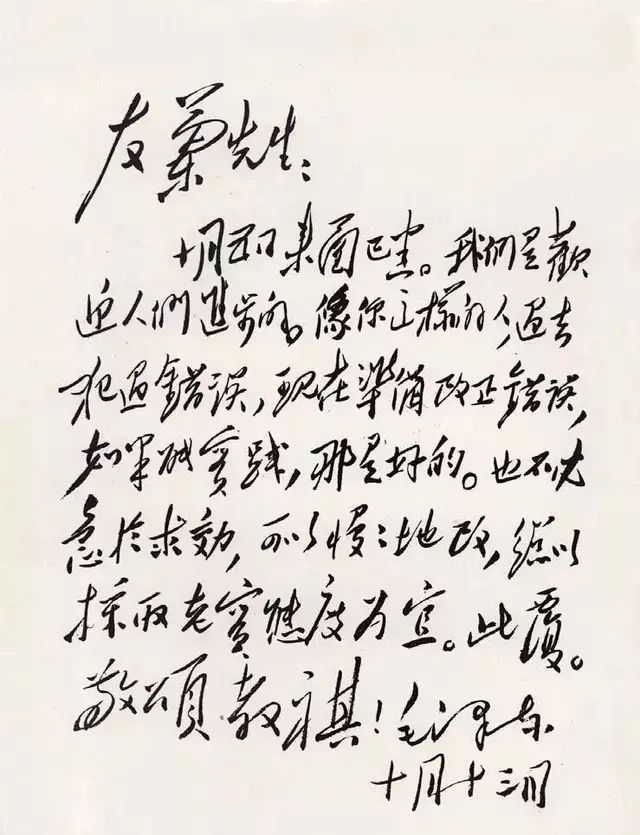 友蘭先生：
十月五日来函已悉。我們是歡
迎人們進步的。像你这樣的人，過去
犯過錯误，现在準備改正錯误，
如果能實踐，那是好的。也不必
急於求効，可以慢〻地改，總以
採取老實態度为宜。此覆。
敬頌教祺！毛泽东
十月十三日